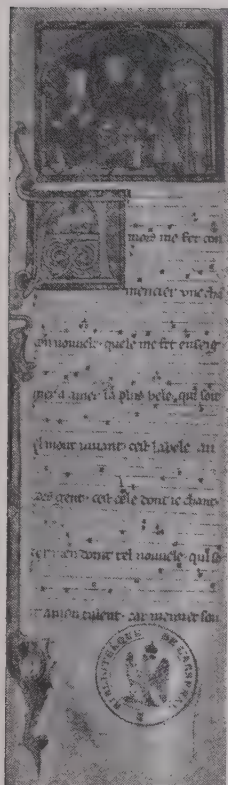 Amors me fet con
mencier vne chā
con nouuele quele me fet enseig
nier a amer la plus bele qui soit
el mont uiuant cest la bele au
cors gent cest cele dont ie chant
dex men doint tel nouuele qui so
it a mon talent car menuet sou
BIBLIOTHEQUE DE L'ARSENAL